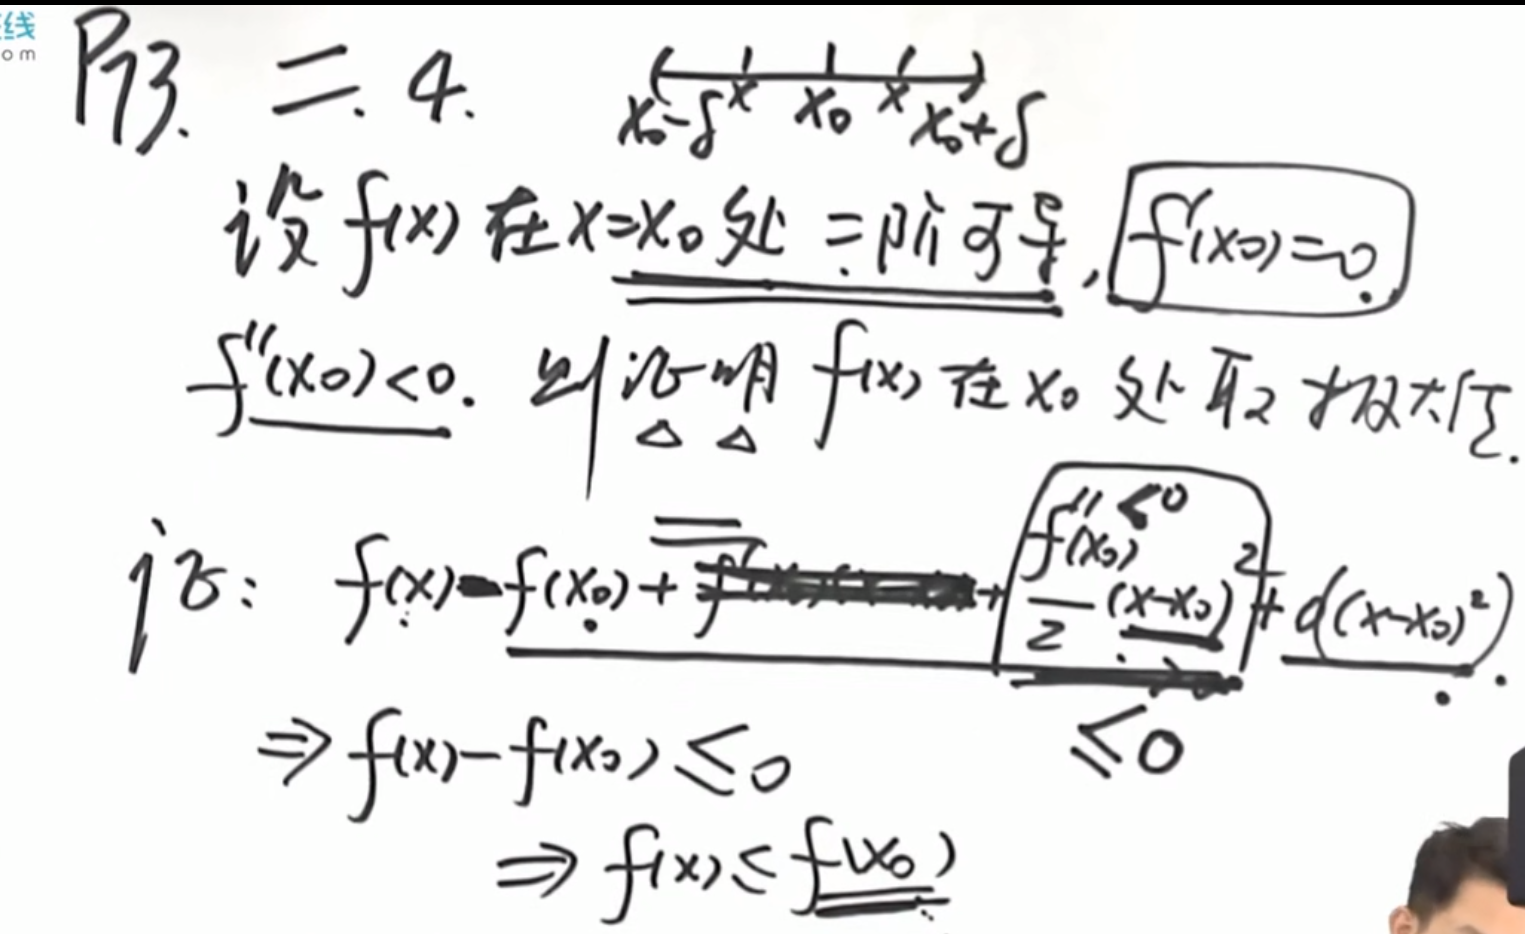 线
om
P73. 二. 4.
x₀-δ x x₀ x x₀+δ
设 f(x) 在 x=x₀ 处 二阶可导, f'(x₀)=0
f''(x₀)<0. 则证明 f(x) 在 x₀ 处取极大值.
证: f(x)=f(x₀)+ +f''(x₀)/2 (x-x₀)²+o((x-x₀)²).
<0
≤0
⇒ f(x)-f(x₀)≤0
⇒ f(x)≤f(x₀)